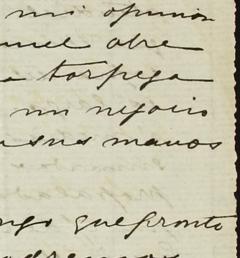 mi opinion
nuel obre
torpeza
mi negocio
sus manos
ngo que pronto